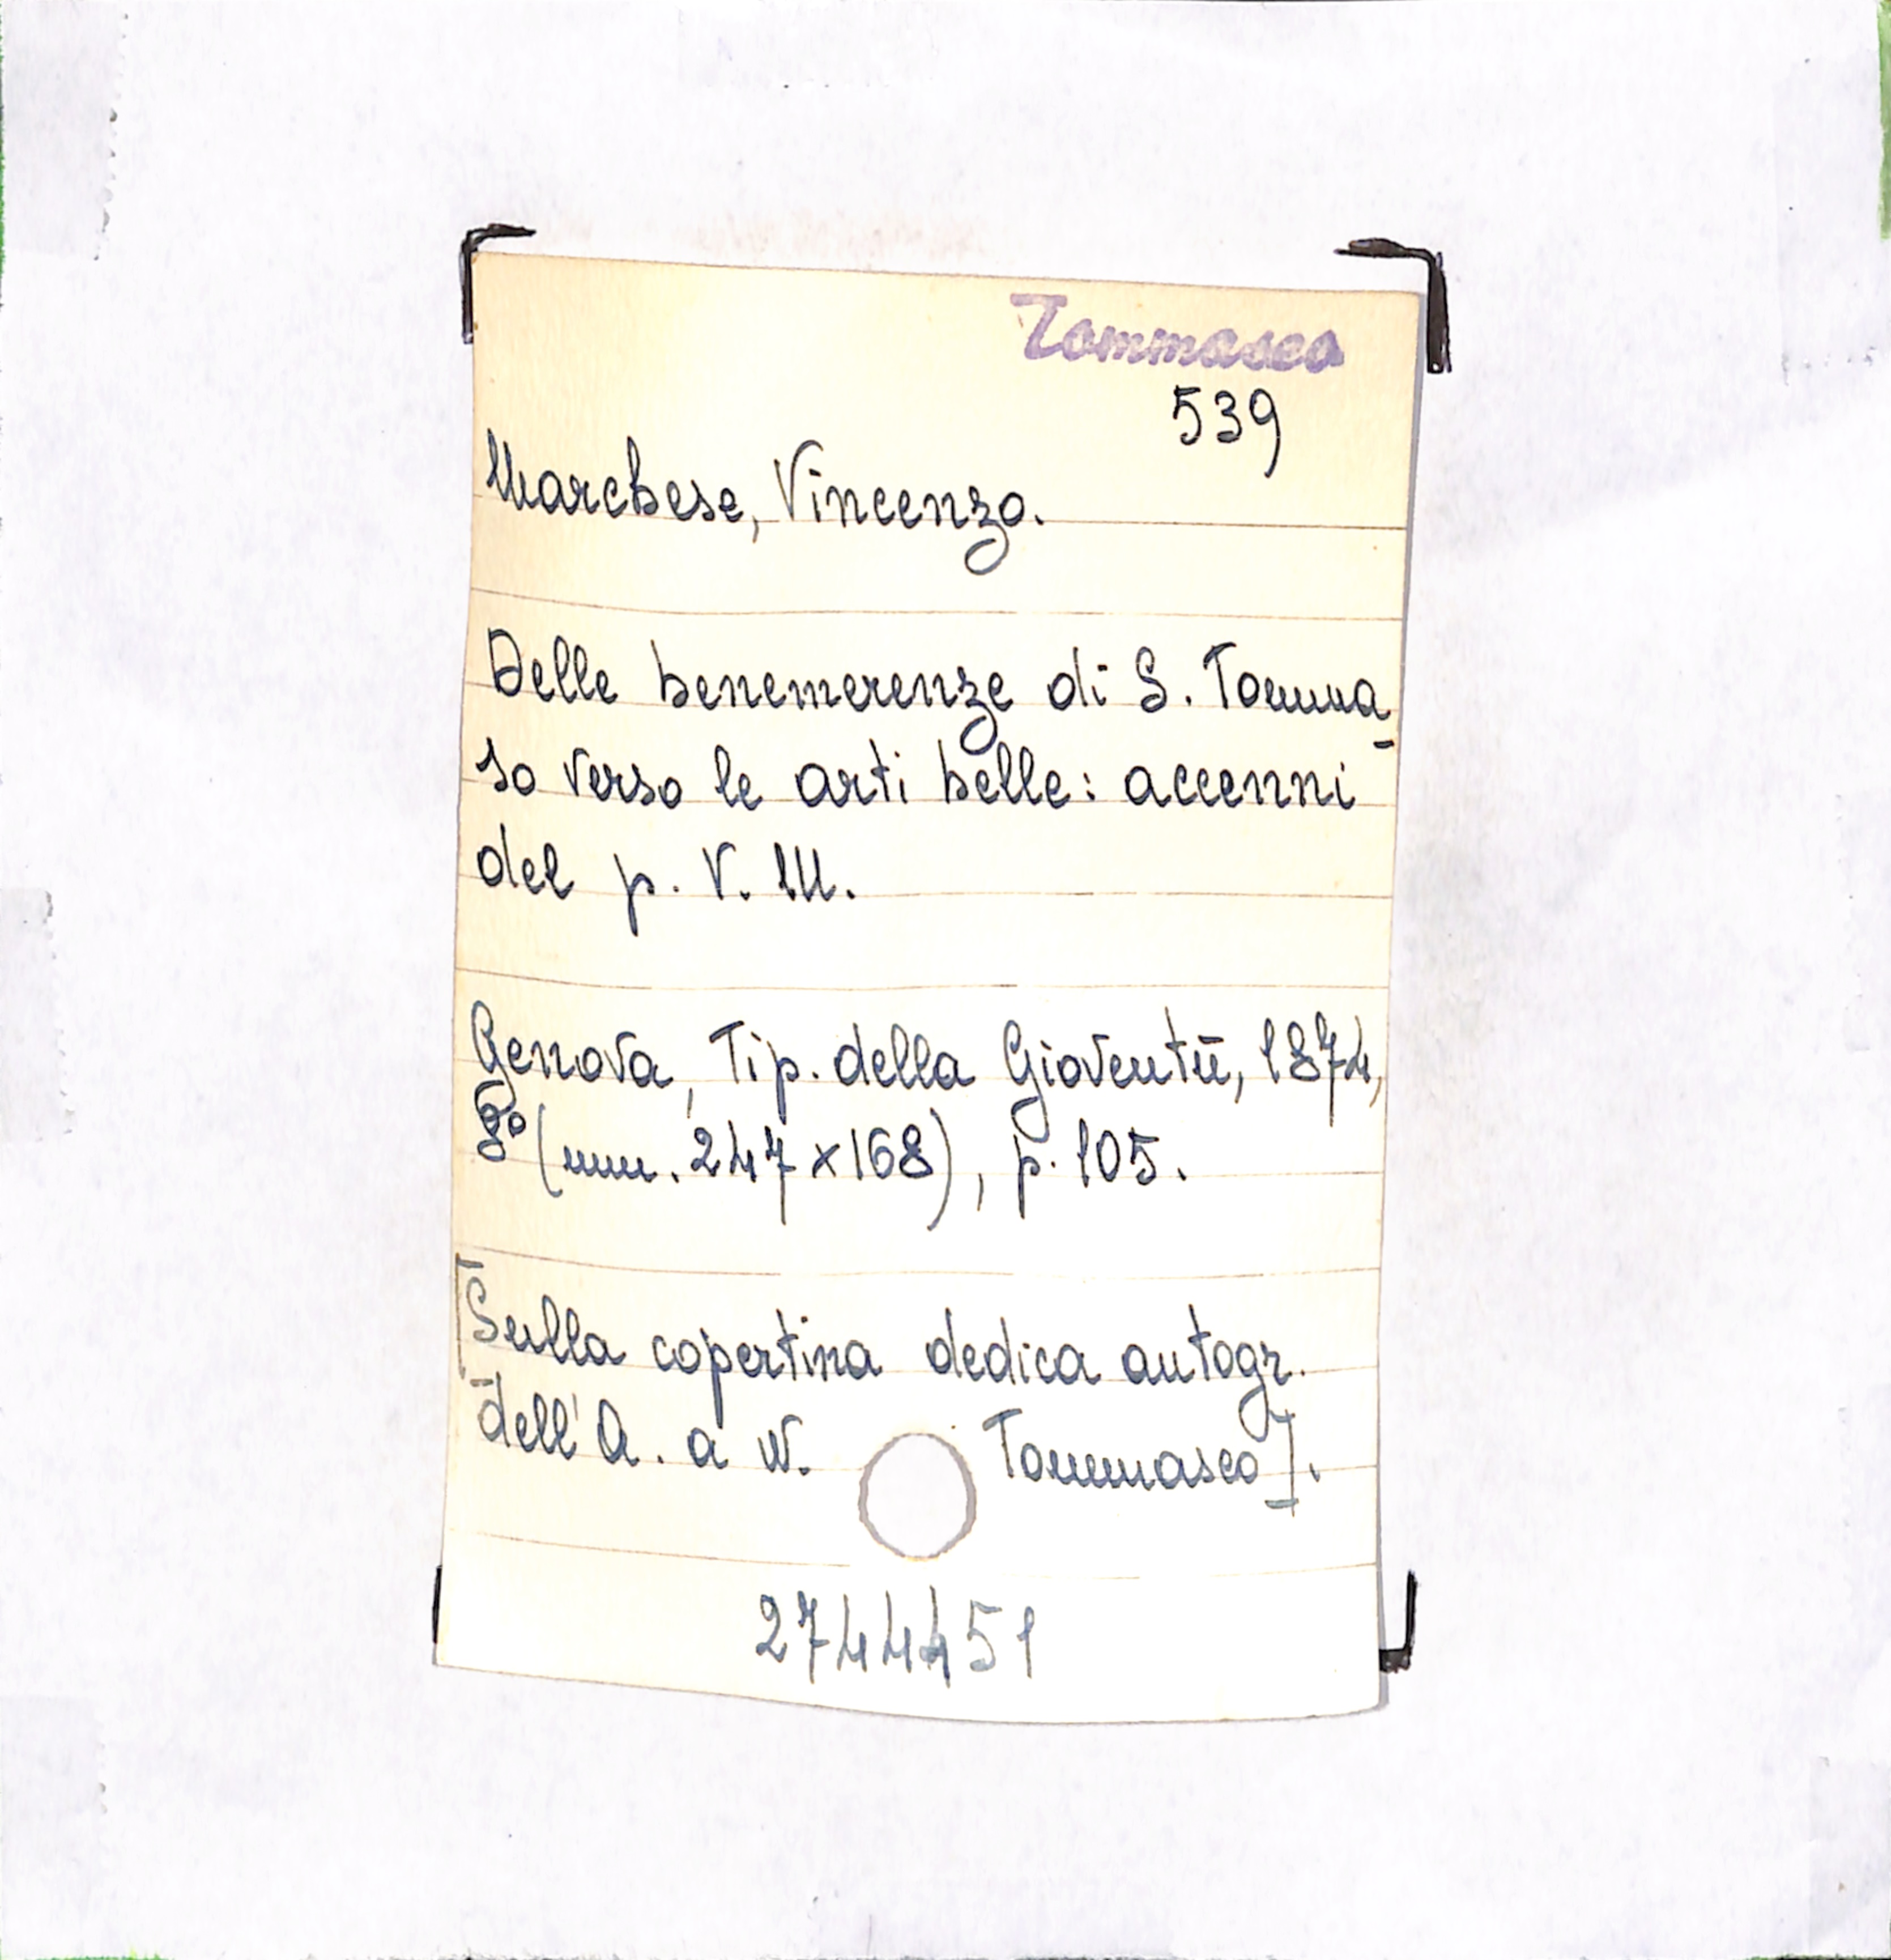 Tommaseo
539
Marchese, Vincenzo.
Delle benemerenze di S. Tomma-
so verso le arti belle: accenni
del p. V. M.
Genova, Tip. della Gioventù, 1874,
8° (mm. 247 x 168), p. 105.
[Sulla copertina dedica autogr.
dell'A. a N. Tommaseo].
2744451